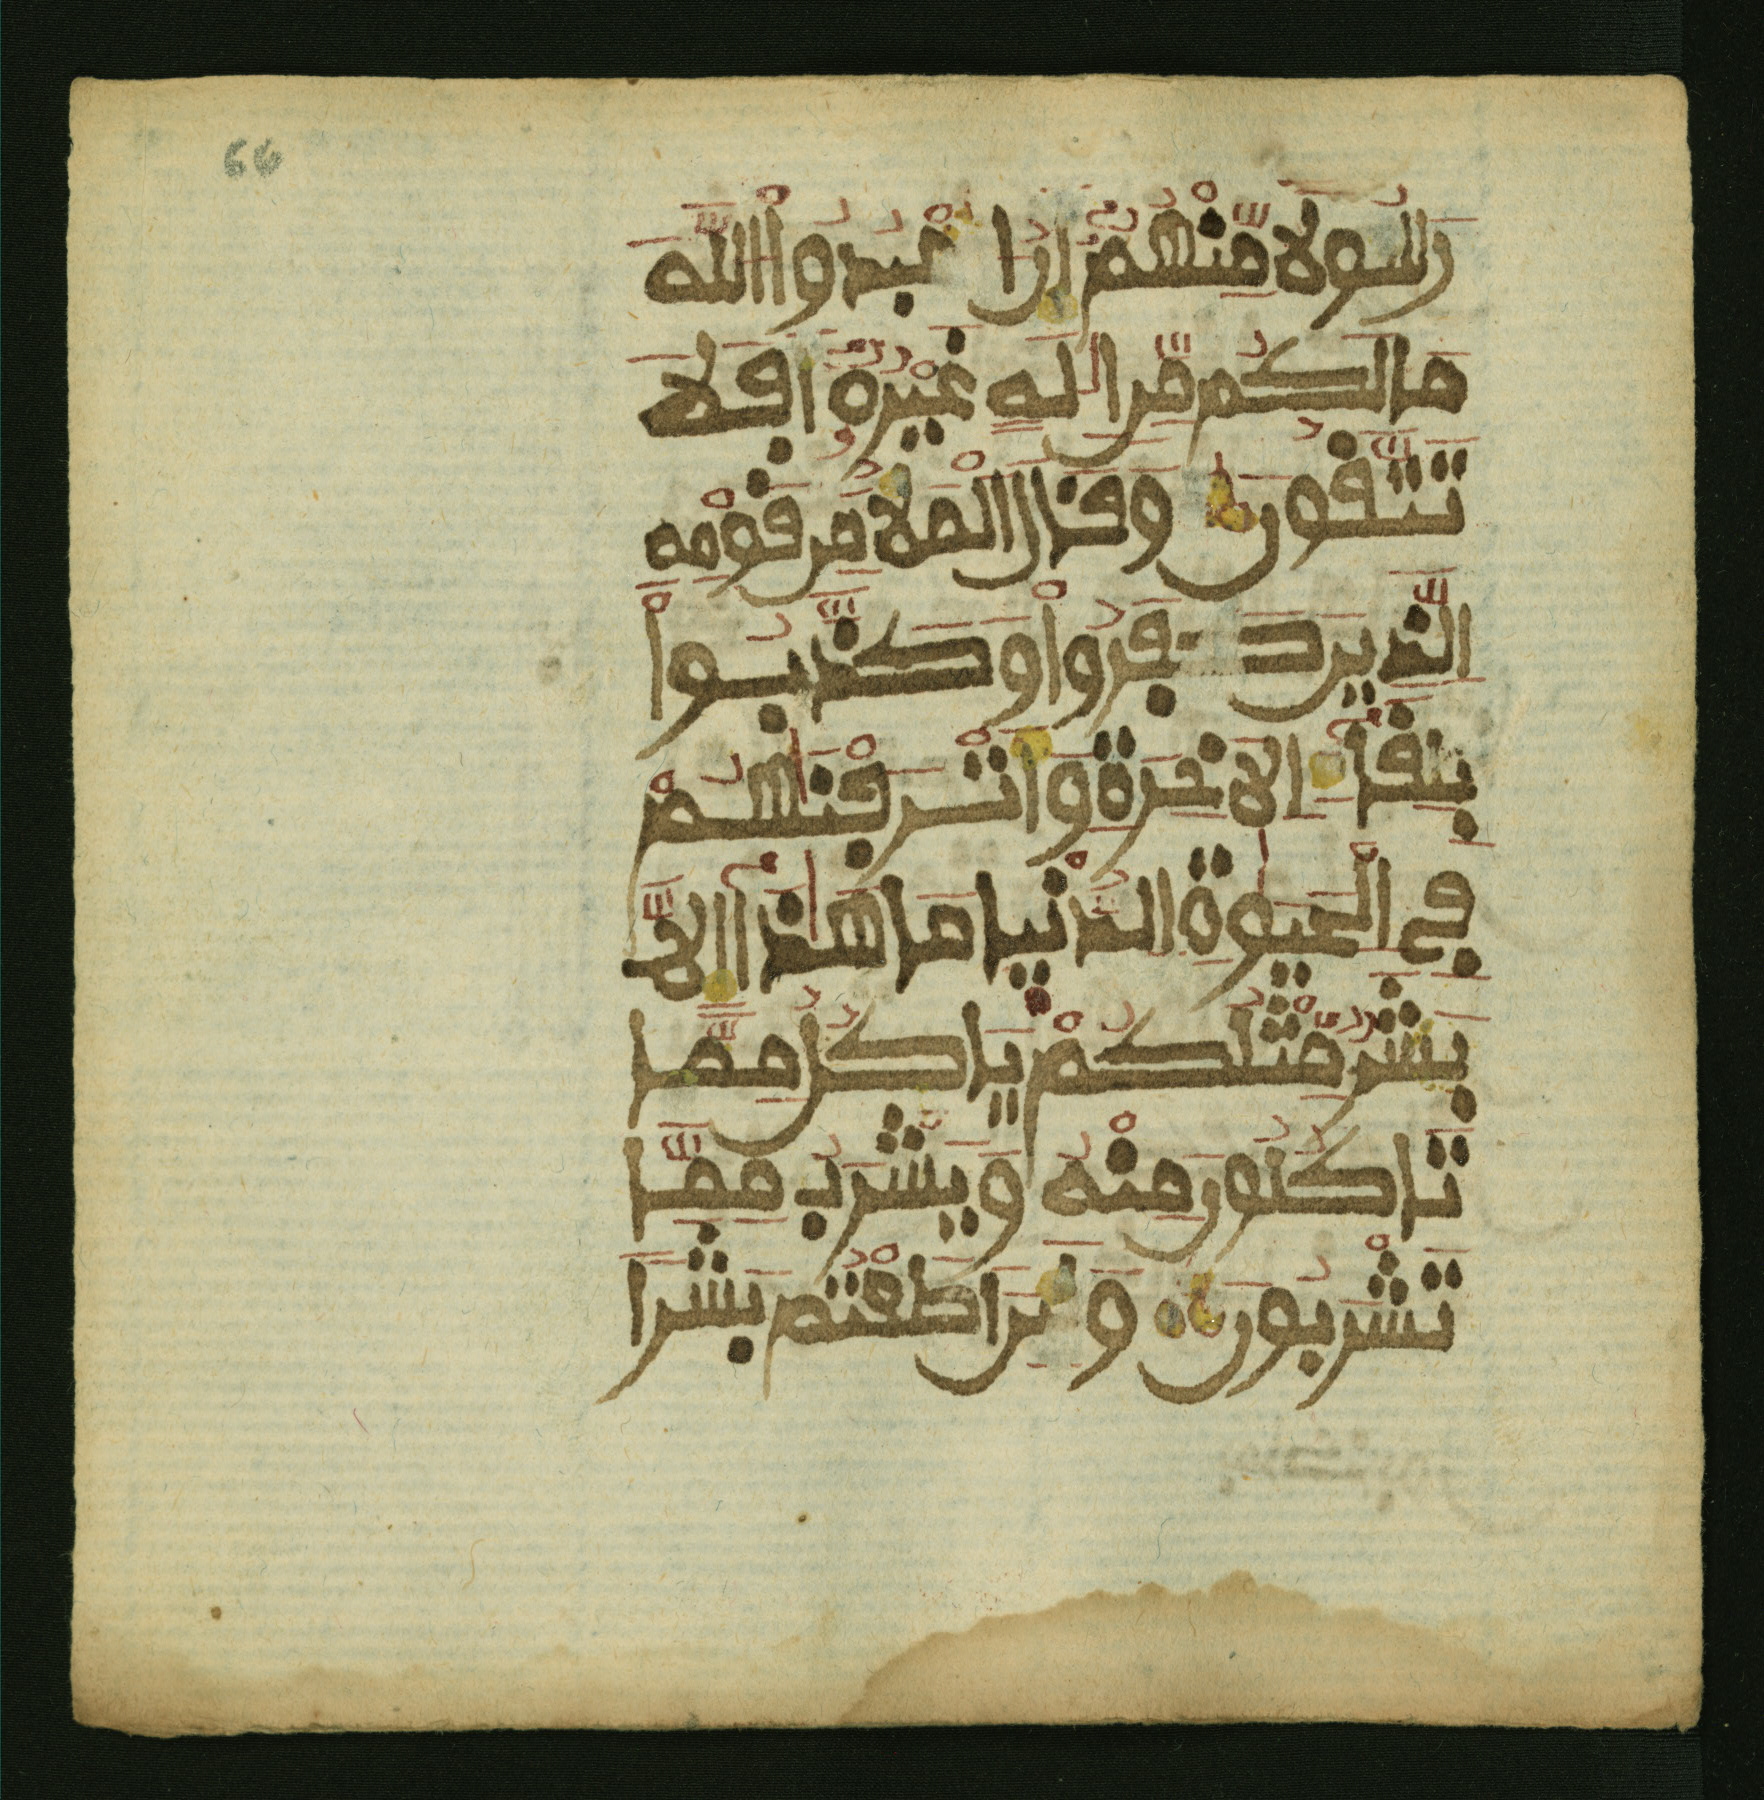 66
رَسُولًا مِّنْهُمُۥٓ أَنُ اعْبُدُوا۟ اللَّهَ
مَا لَكُم مِّنِ الَٰهٍ غَيْرُهُۥٓ أَفَلَا
تَتَّقُونَ وَقَالَ الْمَلَأُ مِن قَوْمِهِ
الَّذِينَ كَفَرُوا۟ وَكَذَّبُوا۟
بِلِقَآءِ الَاخِرَةِ وَأَتْرَفْنَٰهُمْ
فِے الْحَيَوٰةِ الدُّنْيَا مَا هَٰذَآ إِلَّا
بَشَرٌ مِّثْلُكُمْ يَاكُلُ مِمَّا
تَاكُلُونَ مِنْهُ وَيَشْرَبُ مِمَّا
تَشْرَبُونَ وَلَئِنَ اَطَعْتُم بَشَرًا